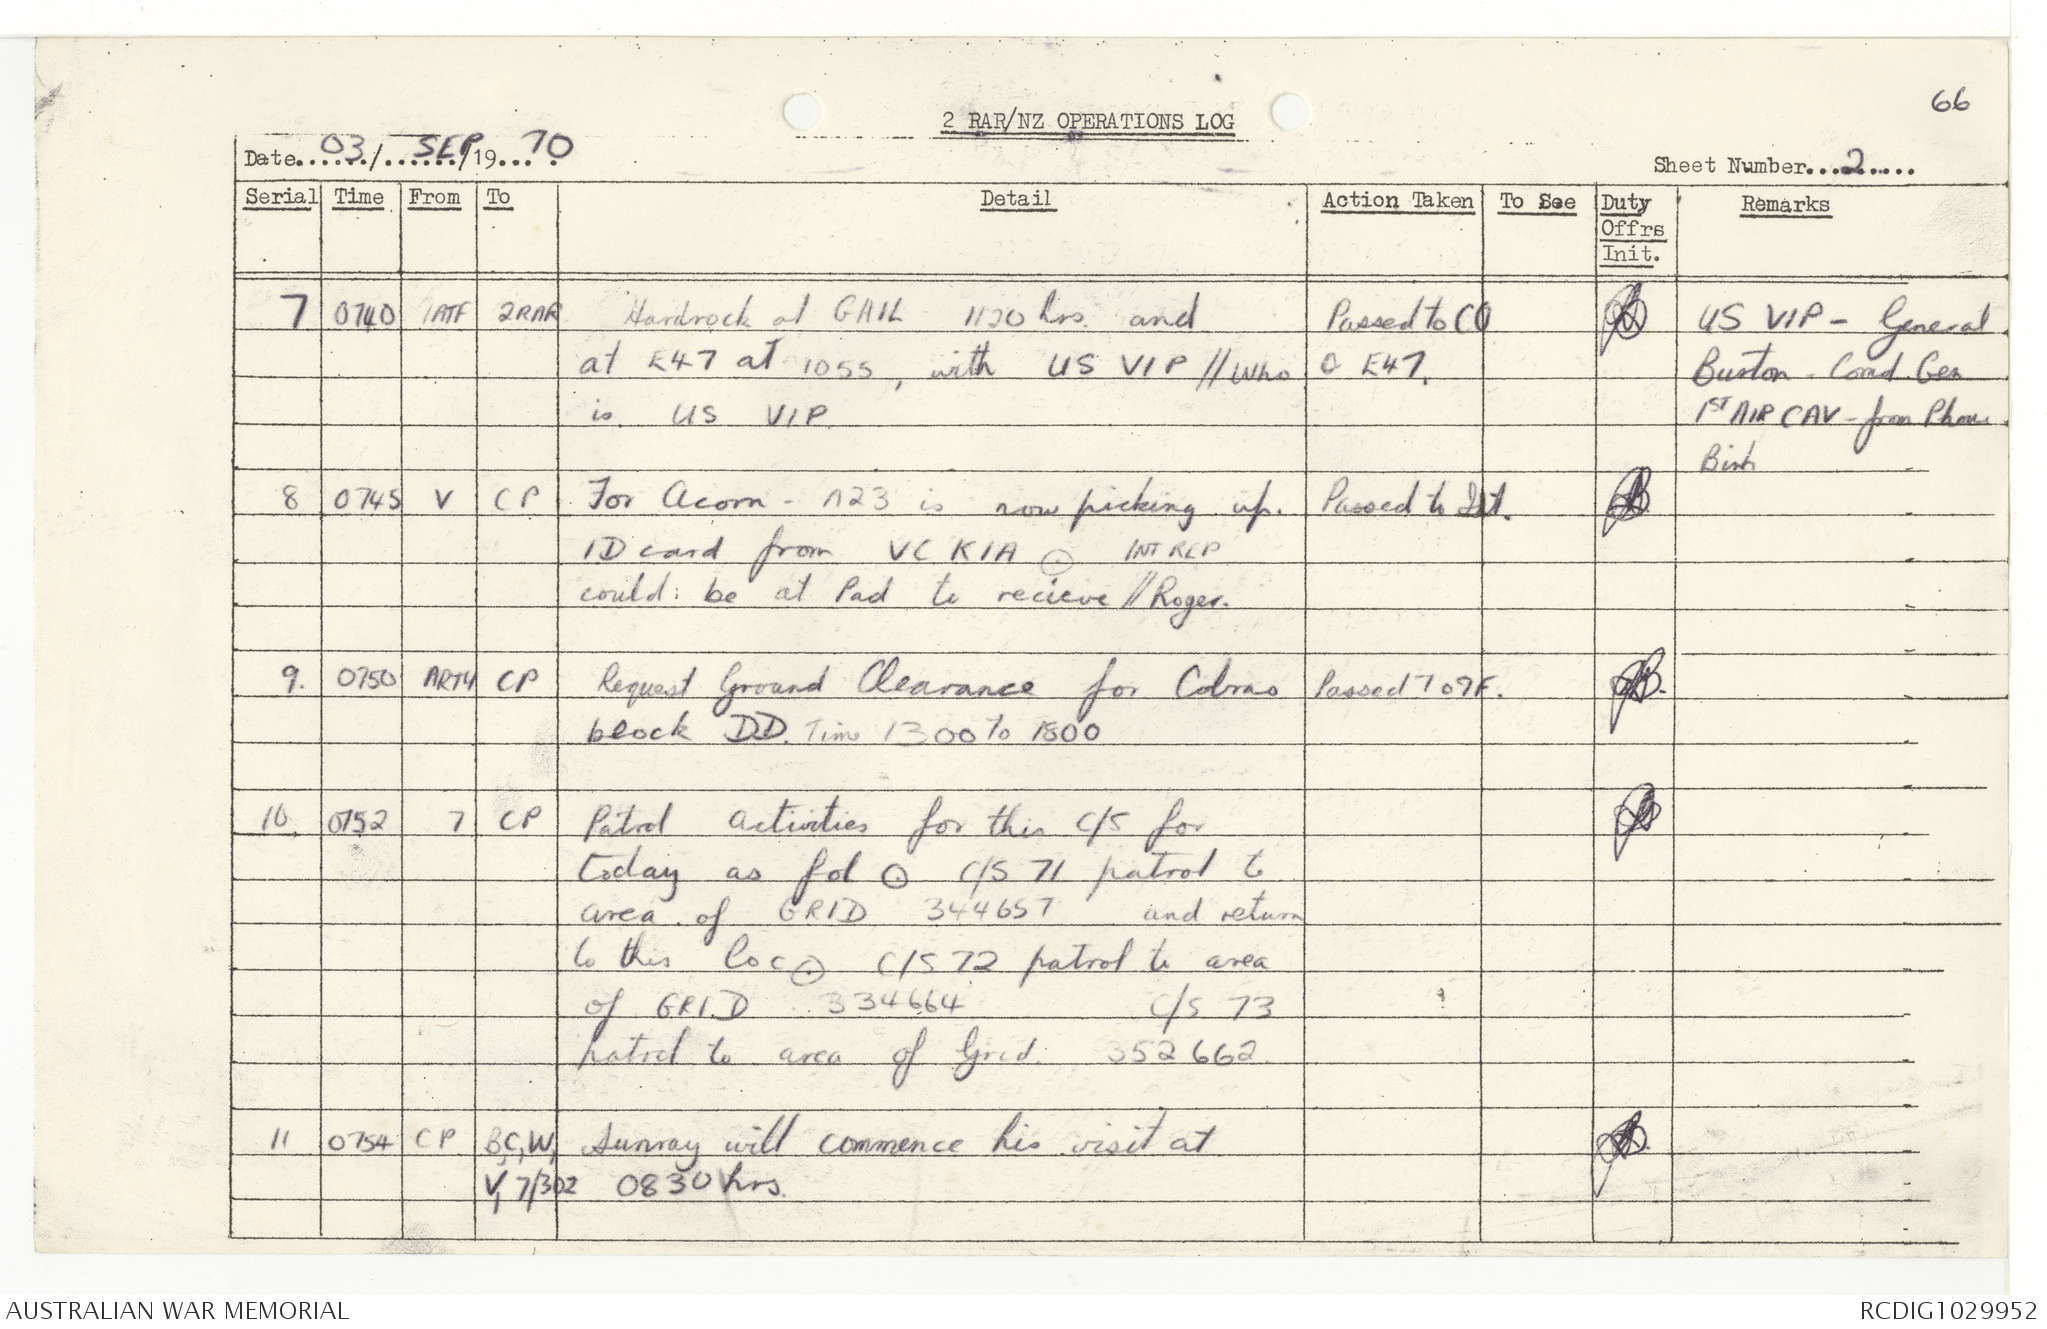 66
2 RAR/NZ OPERATIONS LOG
Date...03.../...SEP.../19...70
Sheet Number...2.....
Serial Time From To Detail Action Taken To See Duty Offrs Init. Remarks
7 0740 1ATF 2RAR Hardrock at GAIL 1120 hrs. and Passed to CO US VIP - General
at E47 at 1055, with US VIP // Who E47. Buston - Comd. Gen
is US VIP 1ST AIR CAV - from Phouc
Binh
8 0745 V CP For Acorn - A23 is now picking up. Passed to Int.
ID card from VC KIA ⊙ INT REP
could: be at Pad to recieve // Roger.
9. 0750 ARTY CP Request Ground Clearance for Cobras Passed TO 7F.
block DD. Time 1300 to 1800
10. 0752 7 CP Patrol activities for this C/S for
today as fol ⊙ C/S 71 patrol to
area of GRID 344657 and return
to this loc ⊙ C/S 72 patrol to area
of GRID 334664 C/S 73
patrol to area of Grid. 352662.
11 0754 CP B,C,W, Sunray will commence his visit at
V, 7/302 0830 hrs.
AUSTRALIAN WAR MEMORIAL RCDIG1029952